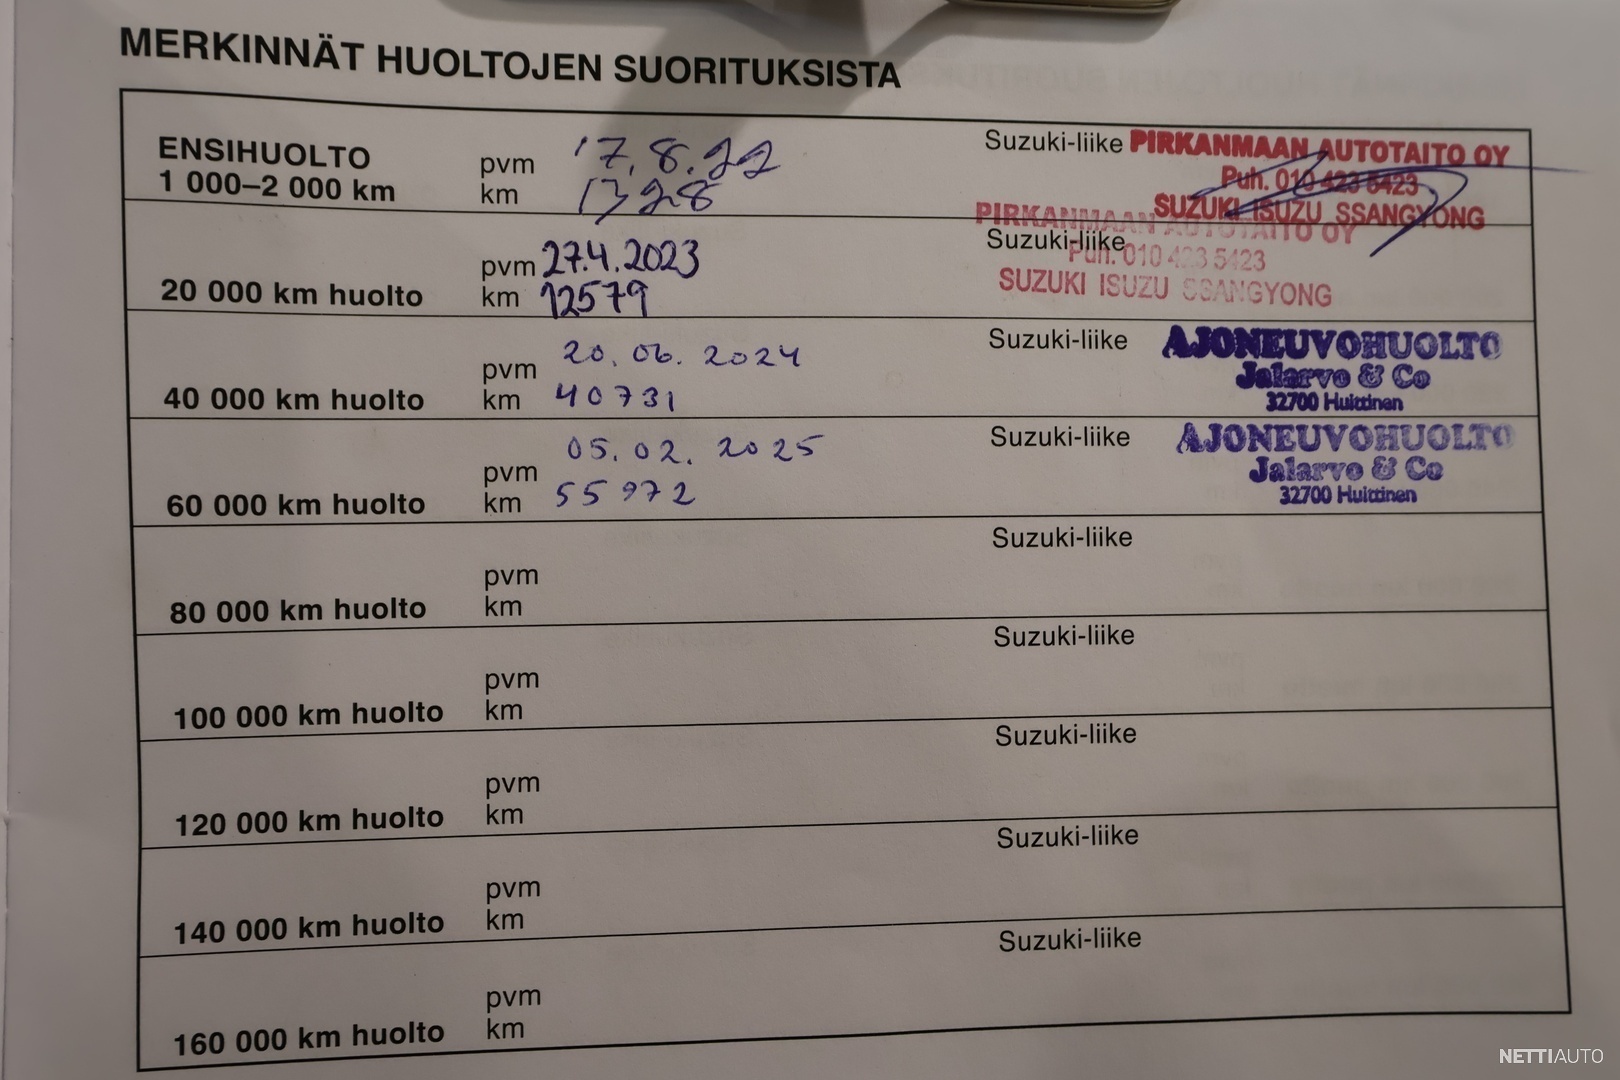 MERKINNÄT HUOLTOJEN SUORITUKSISTA
ENSIHUOLTO
1 000–2 000 km
pvm 17.8.22
km 1328
Suzuki-liike PIRKANMAAN AUTOTAITO OY
Puh. 010 423 5423
SUZUKI ISUZU SSANGYONG
20 000 km huolto
pvm 27.4.2023
km 12579
Suzuki-liike
PIRKANMAAN AUTOTAITO OY
Puh. 010 423 5423
SUZUKI ISUZU SSANGYONG
40 000 km huolto
pvm 20.06.2024
km 40731
Suzuki-liike AJONEUVOHUOLTO
Jalarvo & Co
32700 Huittinen
60 000 km huolto
pvm 05.02.2025
km 55972
Suzuki-liike AJONEUVOHUOLTO
Jalarvo & Co
32700 Huittinen
80 000 km huolto
pvm
km
Suzuki-liike
100 000 km huolto
pvm
km
Suzuki-liike
120 000 km huolto
pvm
km
Suzuki-liike
140 000 km huolto
pvm
km
Suzuki-liike
160 000 km huolto
pvm
km
Suzuki-liike
NETTIAUTO